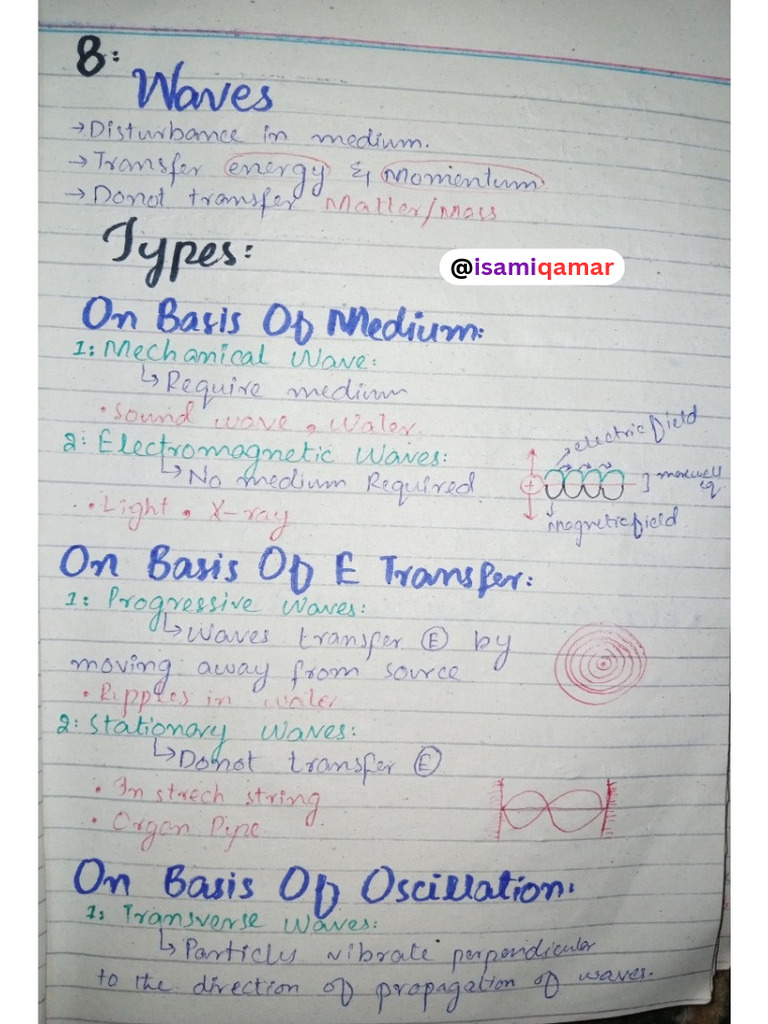 8:
Waves
→ Disturbance in medium.
→ Transfer energy & Momentum
→ Donot transfer Matter/Mass
Types:
@isamiqamar
On Basis Of Medium:
1: Mechanical Wave:
↳ Require medium
• Sound wave, Water.
2: Electromagnetic Waves:
↳ No medium Required
• Light, X-ray
electric field
maxwell
eq
Magnetic field
On Basis Of E Transfer:
1: Progressive Waves:
↳ Waves transfer Ⓔ by
moving away from source
• Ripples in water
2: Stationary Waves:
↳ Donot transfer Ⓔ
• In strech string
• Organ Pipe
On Basis Of Oscillation:
1: Transverse Waves:
↳ Particls vibrate perpendicular
to the direction of propagation of waves.